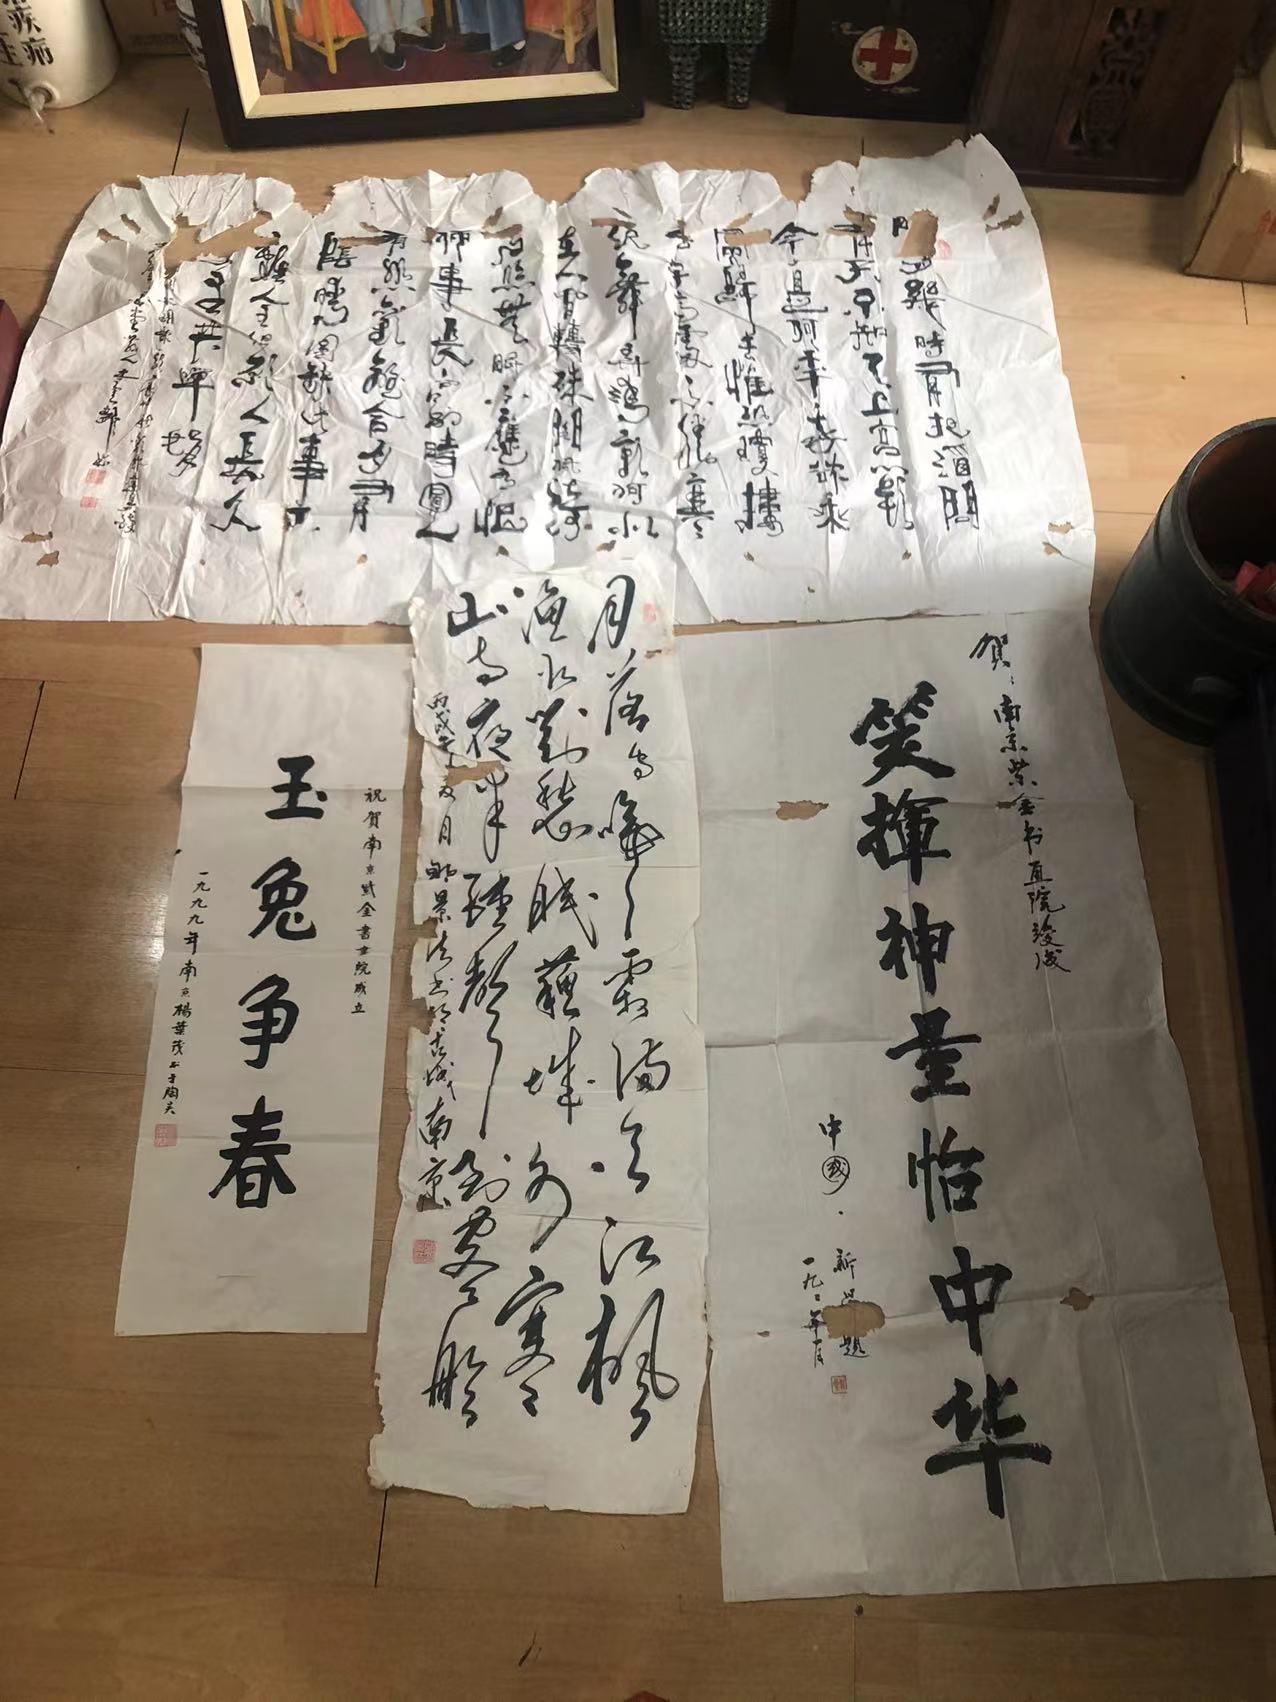 疾病
月幾時有把酒問
不知天上宮闕
今夕是何年我欲乘
風歸去惟恐瓊樓
玉宇高處不勝寒
起舞弄清影何似
在人間轉朱閣低綺
户照無眠不應有恨
何事長向别時圓人
有悲歡離合月有
陰晴圓缺此事古
難全但願人長久
千里共嬋娟
賀：南京紫金书画院竣成
笑揮神墨怡中华
中國·新題
月落烏啼霜滿天江楓
漁火對愁眠蘇城外寒
山寺夜半鐘聲到客船
丙戌年月鄒景清书于古城南京
祝賀南京紫金書画院成立
玉兔争春
一九九九年南京楊葉茂书于陶吴